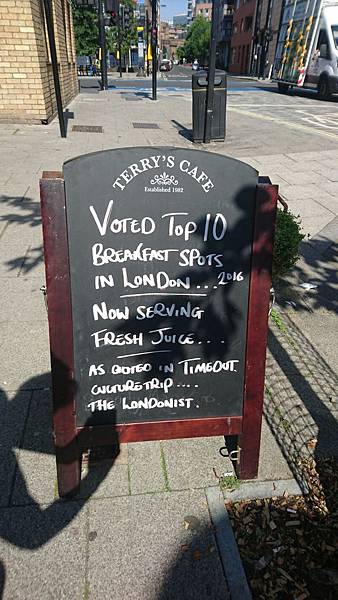 TERRY'S CAFE
Established 1982
VOTED TOP 10
BREAKFAST SPOTS
IN LONDON...2016
NOW SERVING
FRESH JUICE...
AS QUOTED IN TIMEOUT
CULTURETRIP....
THE LONDONIST.